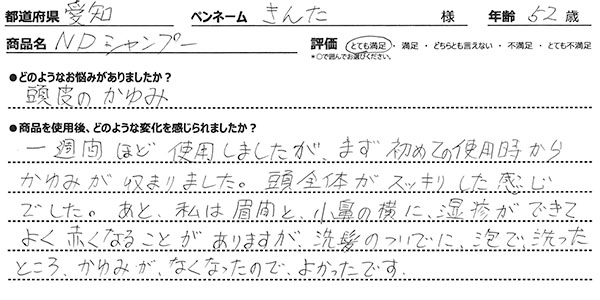 都道府県 愛知 ペンネーム きんた 様 年齢 52 歳
商品名 NDシャンプー 評価 とても満足 ・ 満足 ・ どちらとも言えない ・ 不満足 ・ とても不満足
*○で囲んでお選びください。
●どのようなお悩みがありましたか？
頭皮のかゆみ
●商品を使用後、どのような変化を感じられましたか？
一週間ほど使用しましたが、まず初めての使用時から
かゆみが収まりました。頭全体がスッキリした感じ
でした。あと、私は眉間と、小鼻の横に、湿疹ができて
よく赤くなることがありますが、洗髪のついでに、泡で、洗った
ところ、かゆみが、なくなったので、よかったです.